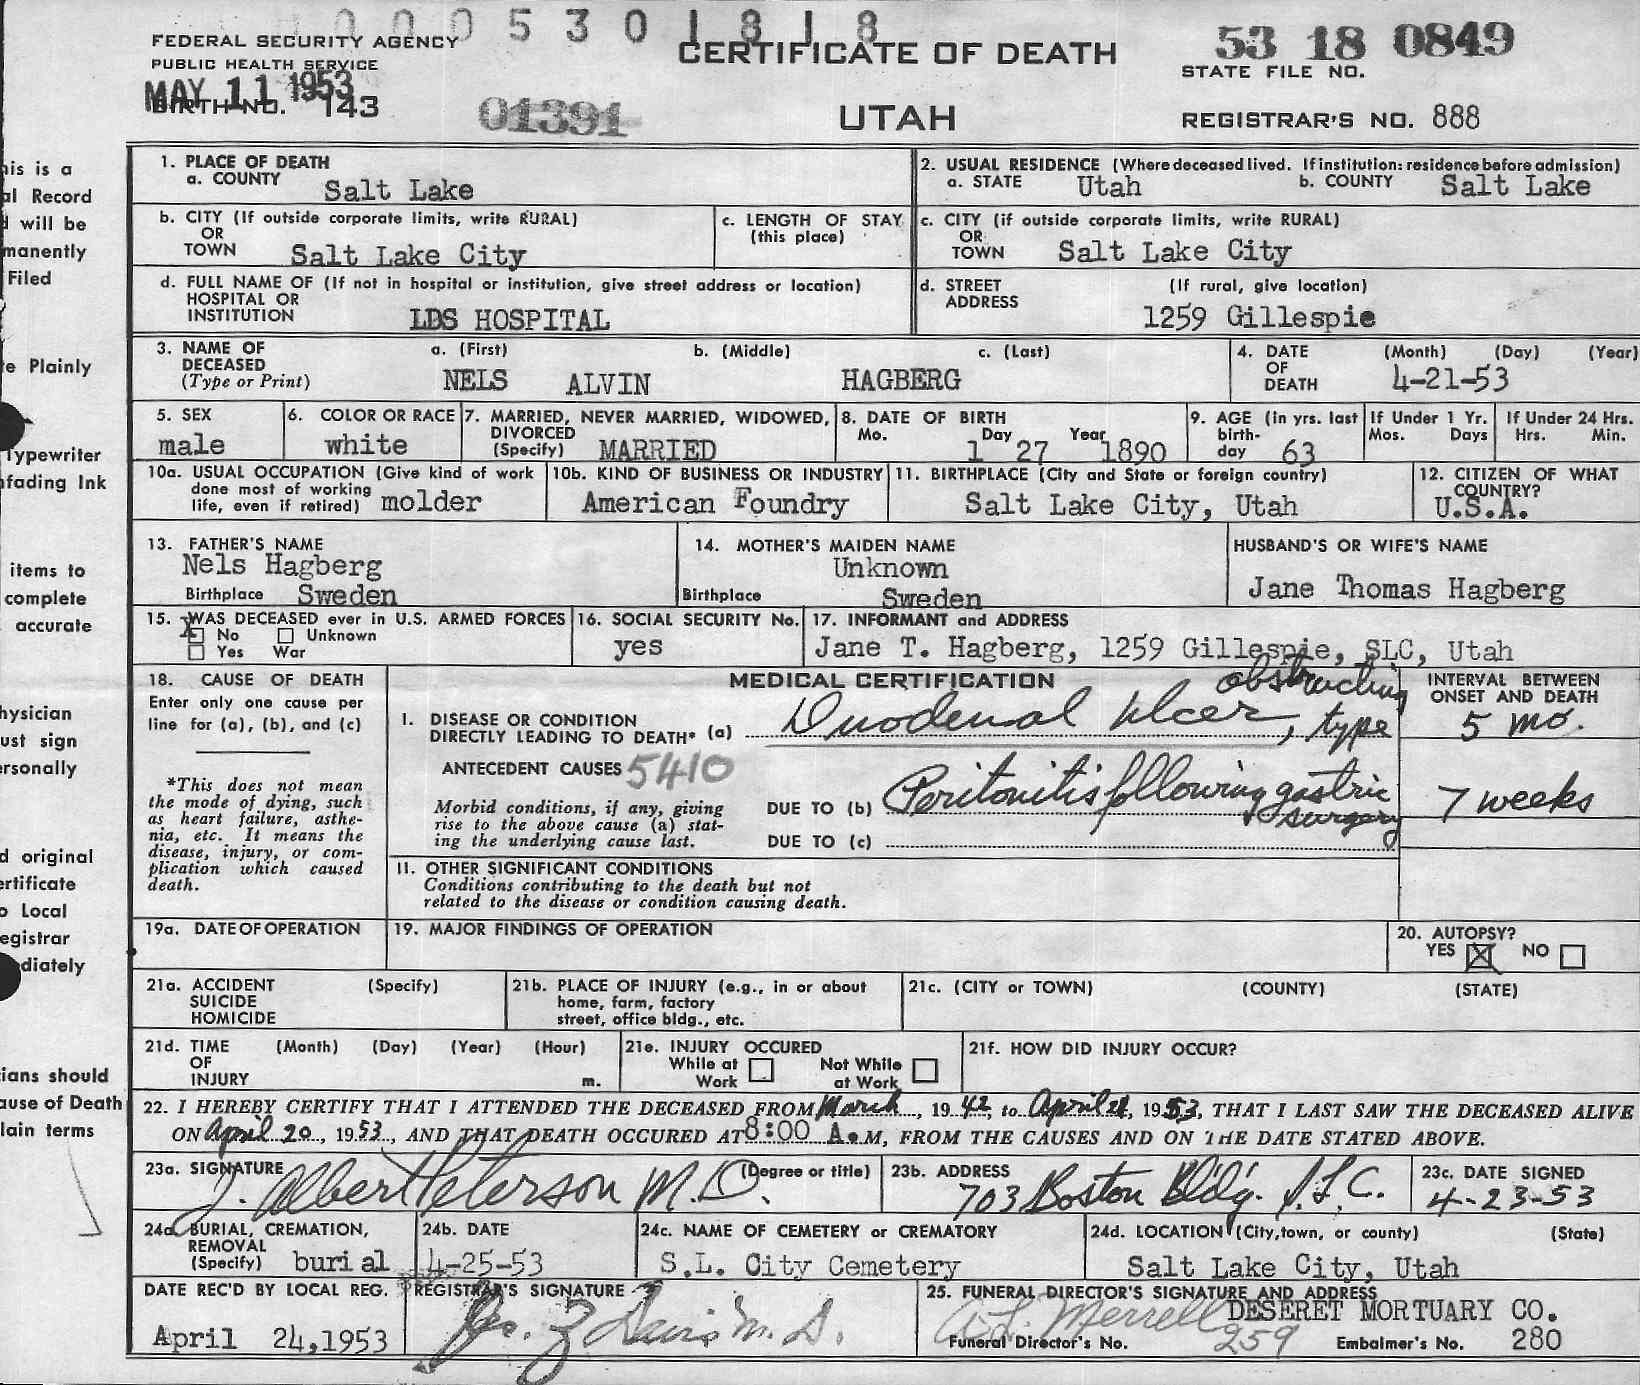 0005301818
FEDERAL SECURITY AGENCY
PUBLIC HEALTH SERVICE
CERTIFICATE OF DEATH
53 18 0849
STATE FILE NO.
MAY 11 1953
BIRTH NO. 143
01391
UTAH
REGISTRAR'S NO. 888
his is a
al Record
d will be
manently
Filed
e Plainly
Typewriter
nfading Ink
items to
complete
accurate
hysician
ust sign
ersonally
d original
ertificate
o Local
egistrar
diately
ians should
ause of Death
lain terms
1. PLACE OF DEATH
a. COUNTY Salt Lake
2. USUAL RESIDENCE (Where deceased lived. If institution: residence before admission)
a. STATE Utah b. COUNTY Salt Lake
b. CITY (If outside corporate limits, write RURAL)
OR
TOWN Salt Lake City
c. LENGTH OF STAY
(this place)
c. CITY (if outside corporate limits, write RURAL)
OR
TOWN Salt Lake City
d. FULL NAME OF (If not in hospital or institution, give street address or location)
HOSPITAL OR
INSTITUTION LDS HOSPITAL
d. STREET (If rural, give location)
ADDRESS 1259 Gillespie
3. NAME OF DECEASED (Type or Print)
a. (First) b. (Middle) c. (Last)
NELS ALVIN HAGBERG
4. DATE OF DEATH (Month) (Day) (Year)
4-21-53
5. SEX
male
6. COLOR OR RACE
white
7. MARRIED, NEVER MARRIED, WIDOWED,
DIVORCED
(Specify) MARRIED
8. DATE OF BIRTH
Mo. Day Year
1 27 1890
9. AGE (in yrs. last
birth-
day 63
If Under 1 Yr.
Mos. Days
If Under 24 Hrs.
Hrs. Min.
10a. USUAL OCCUPATION (Give kind of work
done most of working
life, even if retired) molder
10b. KIND OF BUSINESS OR INDUSTRY
American Foundry
11. BIRTHPLACE (City and State or foreign country)
Salt Lake City, Utah
12. CITIZEN OF WHAT
COUNTRY?
U.S.A.
13. FATHER'S NAME
Nels Hagberg
Birthplace Sweden
14. MOTHER'S MAIDEN NAME
Unknown
Birthplace Sweden
HUSBAND'S OR WIFE'S NAME
Jane Thomas Hagberg
15. WAS DECEASED ever in U.S. ARMED FORCES
X No Unknown
Yes War
16. SOCIAL SECURITY No.
yes
17. INFORMANT and ADDRESS
Jane T. Hagberg, 1259 Gillespie, SLC, Utah
18. CAUSE OF DEATH
Enter only one cause per
line for (a), (b), and (c)
*This does not mean
the mode of dying, such
as heart failure, asthe-
nia, etc. It means the
disease, injury, or com-
plication which caused
death.
MEDICAL CERTIFICATION
INTERVAL BETWEEN
ONSET AND DEATH
I. DISEASE OR CONDITION
DIRECTLY LEADING TO DEATH* (a) Duodenal Ulcer, obstructing type
5 mo.
ANTECEDENT CAUSES 5410
Morbid conditions, if any, giving
rise to the above cause (a) stat-
ing the underlying cause last.
DUE TO (b) Peritonitis following gastric surgery
7 weeks
DUE TO (c)
11. OTHER SIGNIFICANT CONDITIONS
Conditions contributing to the death but not
related to the disease or condition causing death.
19a. DATE OF OPERATION
19. MAJOR FINDINGS OF OPERATION
20. AUTOPSY?
YES X NO
21a. ACCIDENT (Specify)
SUICIDE
HOMICIDE
21b. PLACE OF INJURY (e.g., in or about
home, farm, factory
street, office bldg., etc.
21c. (CITY or TOWN) (COUNTY) (STATE)
21d. TIME (Month) (Day) (Year) (Hour)
OF
INJURY m.
21e. INJURY OCCURED
While at Work
Not While at Work
21f. HOW DID INJURY OCCUR?
22. I HEREBY CERTIFY THAT I ATTENDED THE DECEASED FROM March, 1942, to April 21, 1953, THAT I LAST SAW THE DECEASED ALIVE
ON April 20, 1953, AND THAT DEATH OCCURED AT 8:00 A.M, FROM THE CAUSES AND ON THE DATE STATED ABOVE.
23a. SIGNATURE (Degree or title)
J. Albert Peterson M.D.
23b. ADDRESS
703 Boston Bldg. S.L.C.
23c. DATE SIGNED
4-23-53
24a BURIAL, CREMATION,
REMOVAL
(Specify) burial
24b. DATE
4-25-53
24c. NAME OF CEMETERY or CREMATORY
S.L. City Cemetery
24d. LOCATION (City, town, or county) (State)
Salt Lake City, Utah
DATE REC'D BY LOCAL REG.
April 24,1953
REGISTRAR'S SIGNATURE
Davis M.D.
25. FUNERAL DIRECTOR'S SIGNATURE AND ADDRESS
Merrell DESERET MORTUARY CO.
Funeral Director's No. 259 Embalmer's No. 280